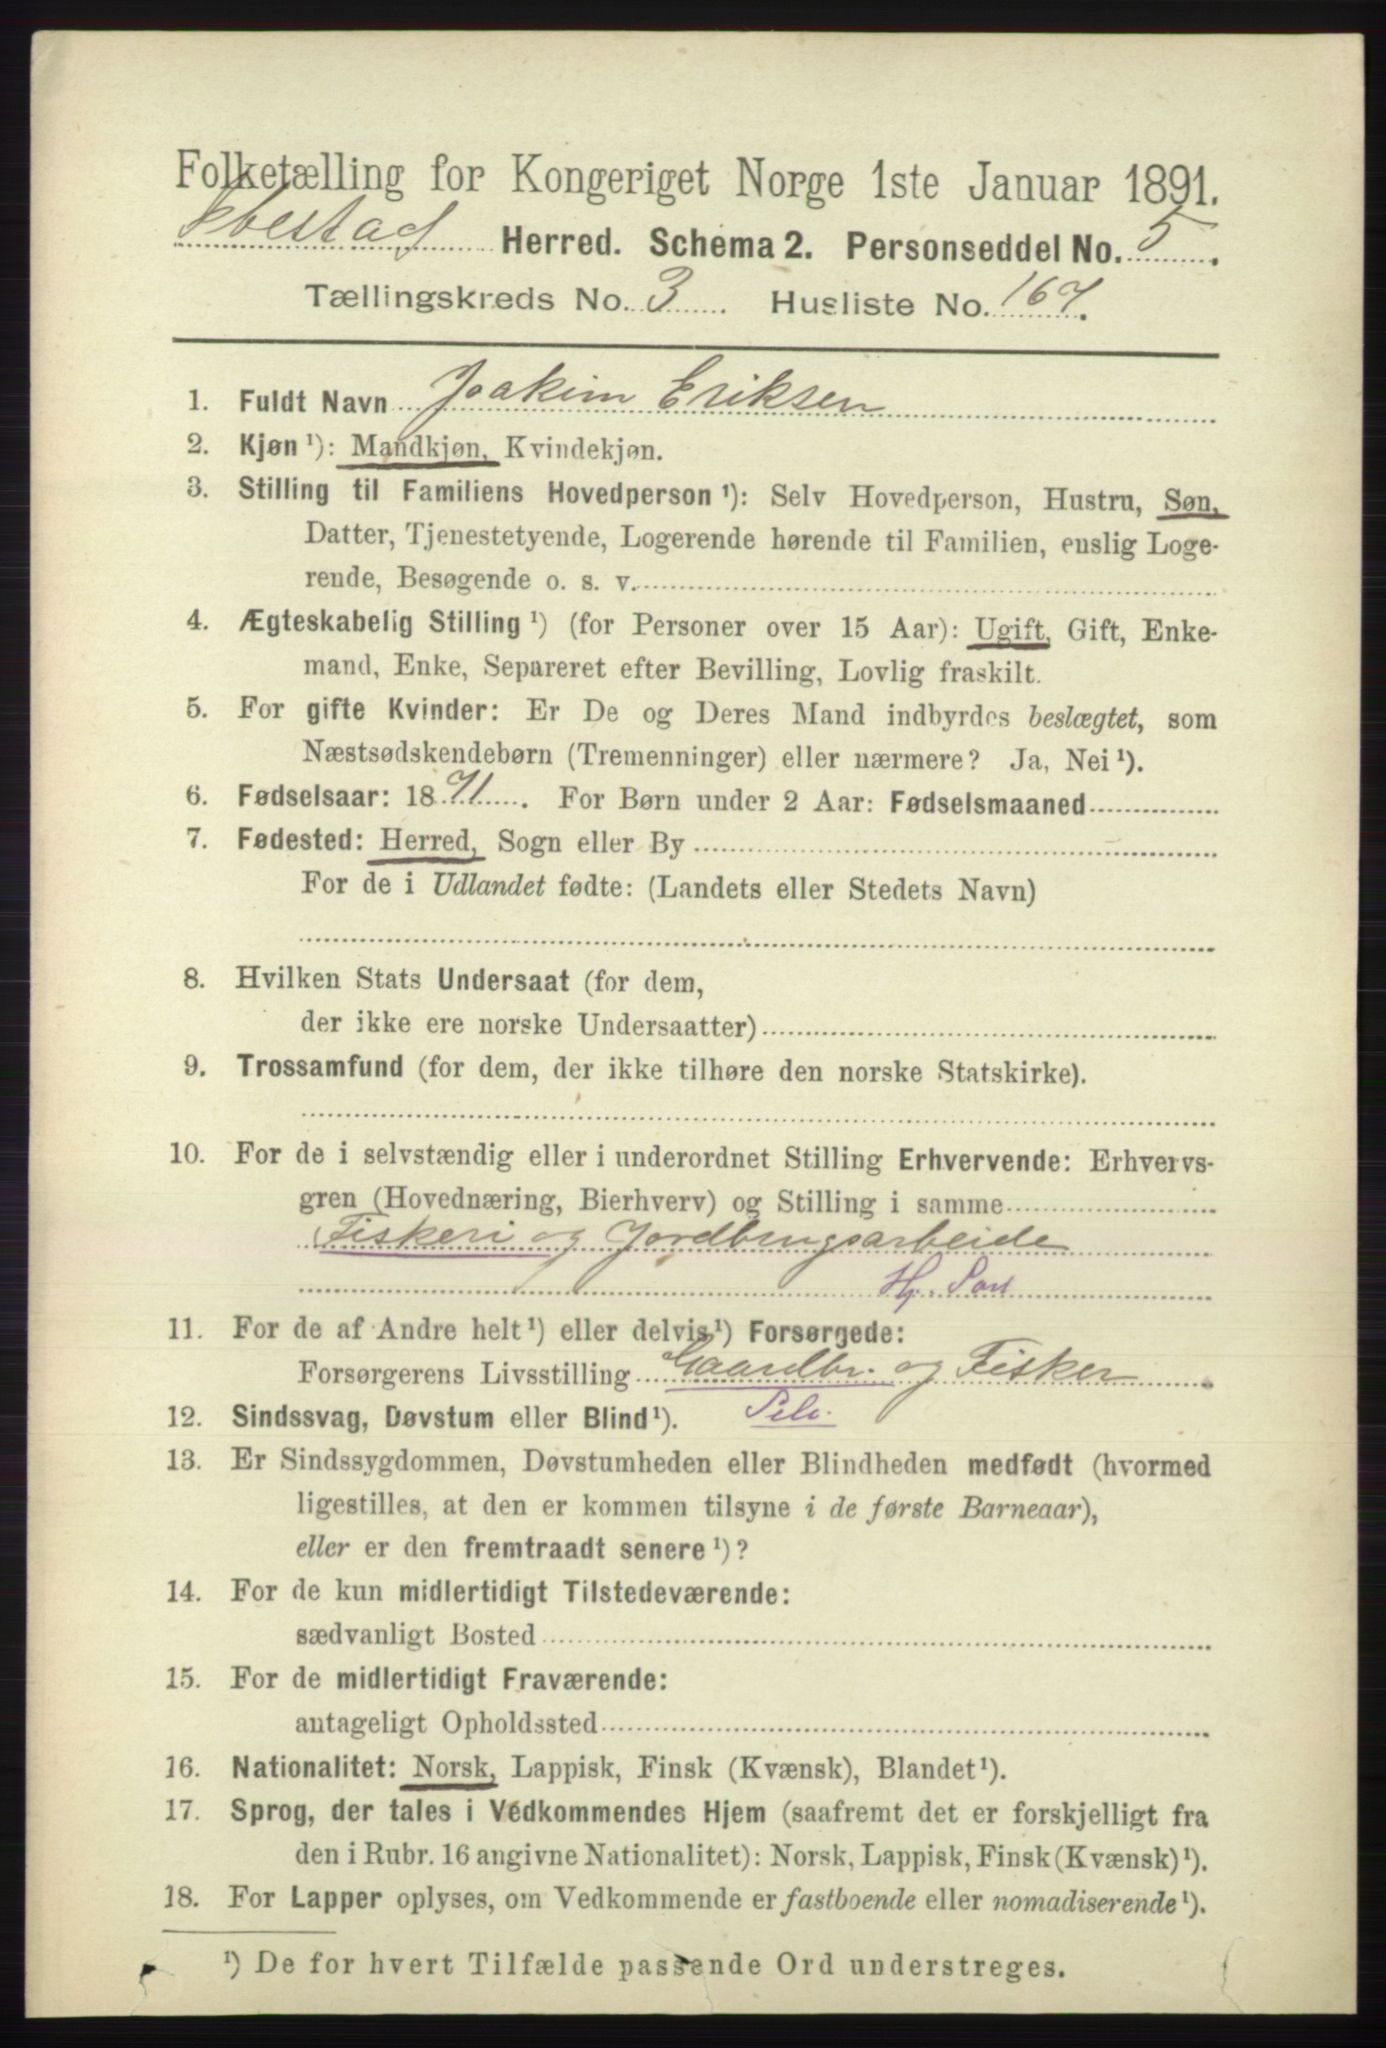 Folketælling for Kongeriget Norge 1ste Januar 1891.
Ibestad Herred. Schema 2. Personseddel No. 5.
Tællingskreds No. 3 Husliste No. 167.
1. Fuldt Navn Joakim Eriksen
2. Kjøn ¹): Mandkjøn, Kvindekjøn.
3. Stilling til Familiens Hovedperson ¹): Selv Hovedperson, Hustru, Søn,
Datter, Tjenestetyende, Logerende hørende til Familien, enslig Loge-
rende, Besøgende o. s. v.
4. Ægteskabelig Stilling ¹) (for Personer over 15 Aar): Ugift, Gift, Enke-
mand, Enke, Separeret efter Bevilling, Lovlig fraskilt.
5. For gifte Kvinder: Er De og Deres Mand indbyrdes beslægtet, som
Næstsødskendebørn (Tremenninger) eller nærmere? Ja, Nei ¹).
6. Fødselsaar: 1871. For Børn under 2 Aar: Fødselsmaaned
7. Fødested: Herred, Sogn eller By
For de i Udlandet fødte: (Landets eller Stedets Navn)
8. Hvilken Stats Undersaat (for dem,
der ikke ere norske Undersaatter)
9. Trossamfund (for dem, der ikke tilhøre den norske Statskirke).
10. For de i selvstændig eller i underordnet Stilling Erhvervende: Erhvervs-
gren (Hovednæring, Bierhverv) og Stilling i samme
Fiskeri og Jordbrugsarbeide
Hj. Søn
11. For de af Andre helt ¹) eller delvis ¹) Forsørgede:
Forsørgerens Livsstilling Gaardbr. og Fisker
12. Sindssvag, Døvstum eller Blind ¹). Selv.
13. Er Sindssygdommen, Døvstumheden eller Blindheden medfødt (hvormed
ligestilles, at den er kommen tilsyne i de første Barneaar),
eller er den fremtraadt senere ¹)?
14. For de kun midlertidigt Tilstedeværende:
sædvanligt Bosted
15. For de midlertidigt Fraværende:
antageligt Opholdssted
16. Nationalitet: Norsk, Lappisk, Finsk (Kvænsk), Blandet ¹).
17. Sprog, der tales i Vedkommendes Hjem (saafremt det er forskjelligt fra
den i Rubr. 16 angivne Nationalitet): Norsk, Lappisk, Finsk (Kvænsk) ¹).
18. For Lapper oplyses, om Vedkommende er fastboende eller nomadiserende ¹).
¹) De for hvert Tilfælde passende Ord understreges.